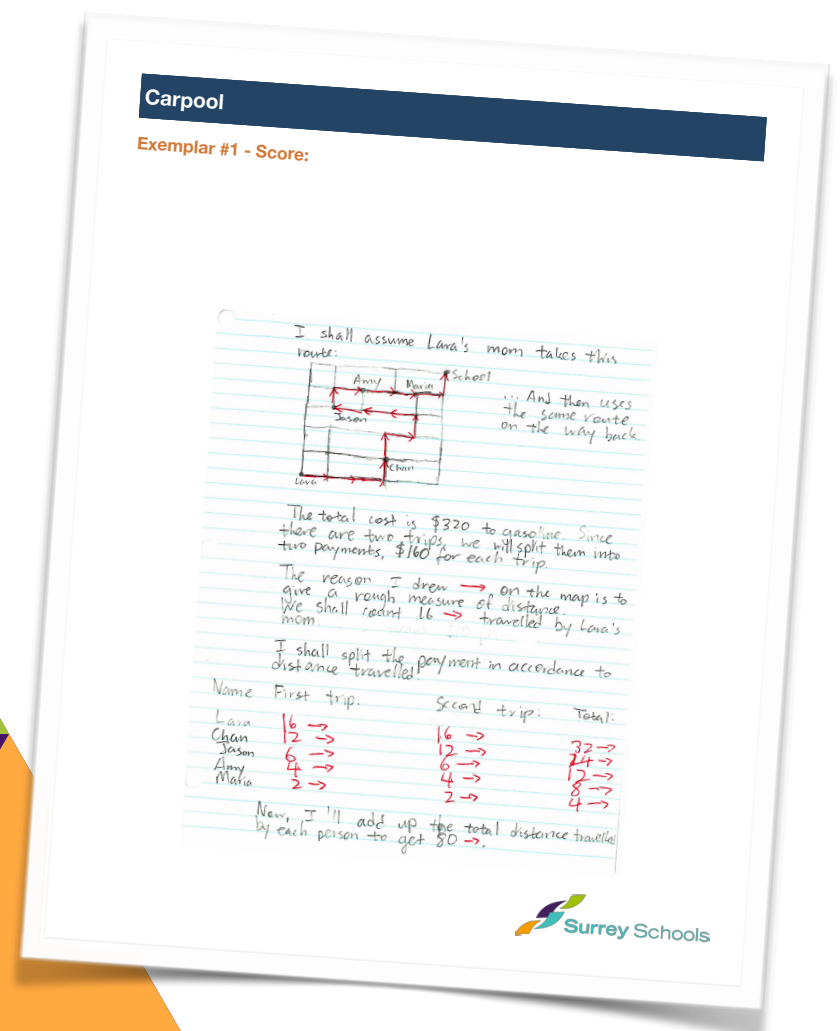 Carpool
Exemplar #1 - Score:
I shall assume Lara's mom takes this
route:
School
Amy
Maria
... And then uses
the same route
on the way back.
Jason
Chan
Lara
The total cost is $320 to gasoline. Since
there are two trips, we will split them into
two payments, $160 for each trip.
The reason I drew → on the map is to
give a rough measure of distance.
We shall count 16 → travelled by Lara's
mom
I shall split the payment in accordance to
distance travelled.
Name First trip: Second trip: Total:
Lara 16 → 16 → 32 →
Chan 12 → 12 → 24 →
Jason 6 → 6 → 12 →
Amy 4 → 4 → 8 →
Maria 2 → 2 → 4 →
Now, I'll add up the total distance travelled
by each person to get 80 →.
Surrey Schools